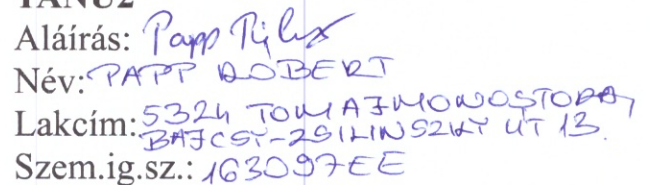 TANÚ2
Aláírás: Papp
Név: PAPP ROBERT
Lakcím: 5324 TOMAJMONOSTORA,
BAJCSY-ZSILINSZKY ÚT 13.
Szem.ig.sz.: 163097EE